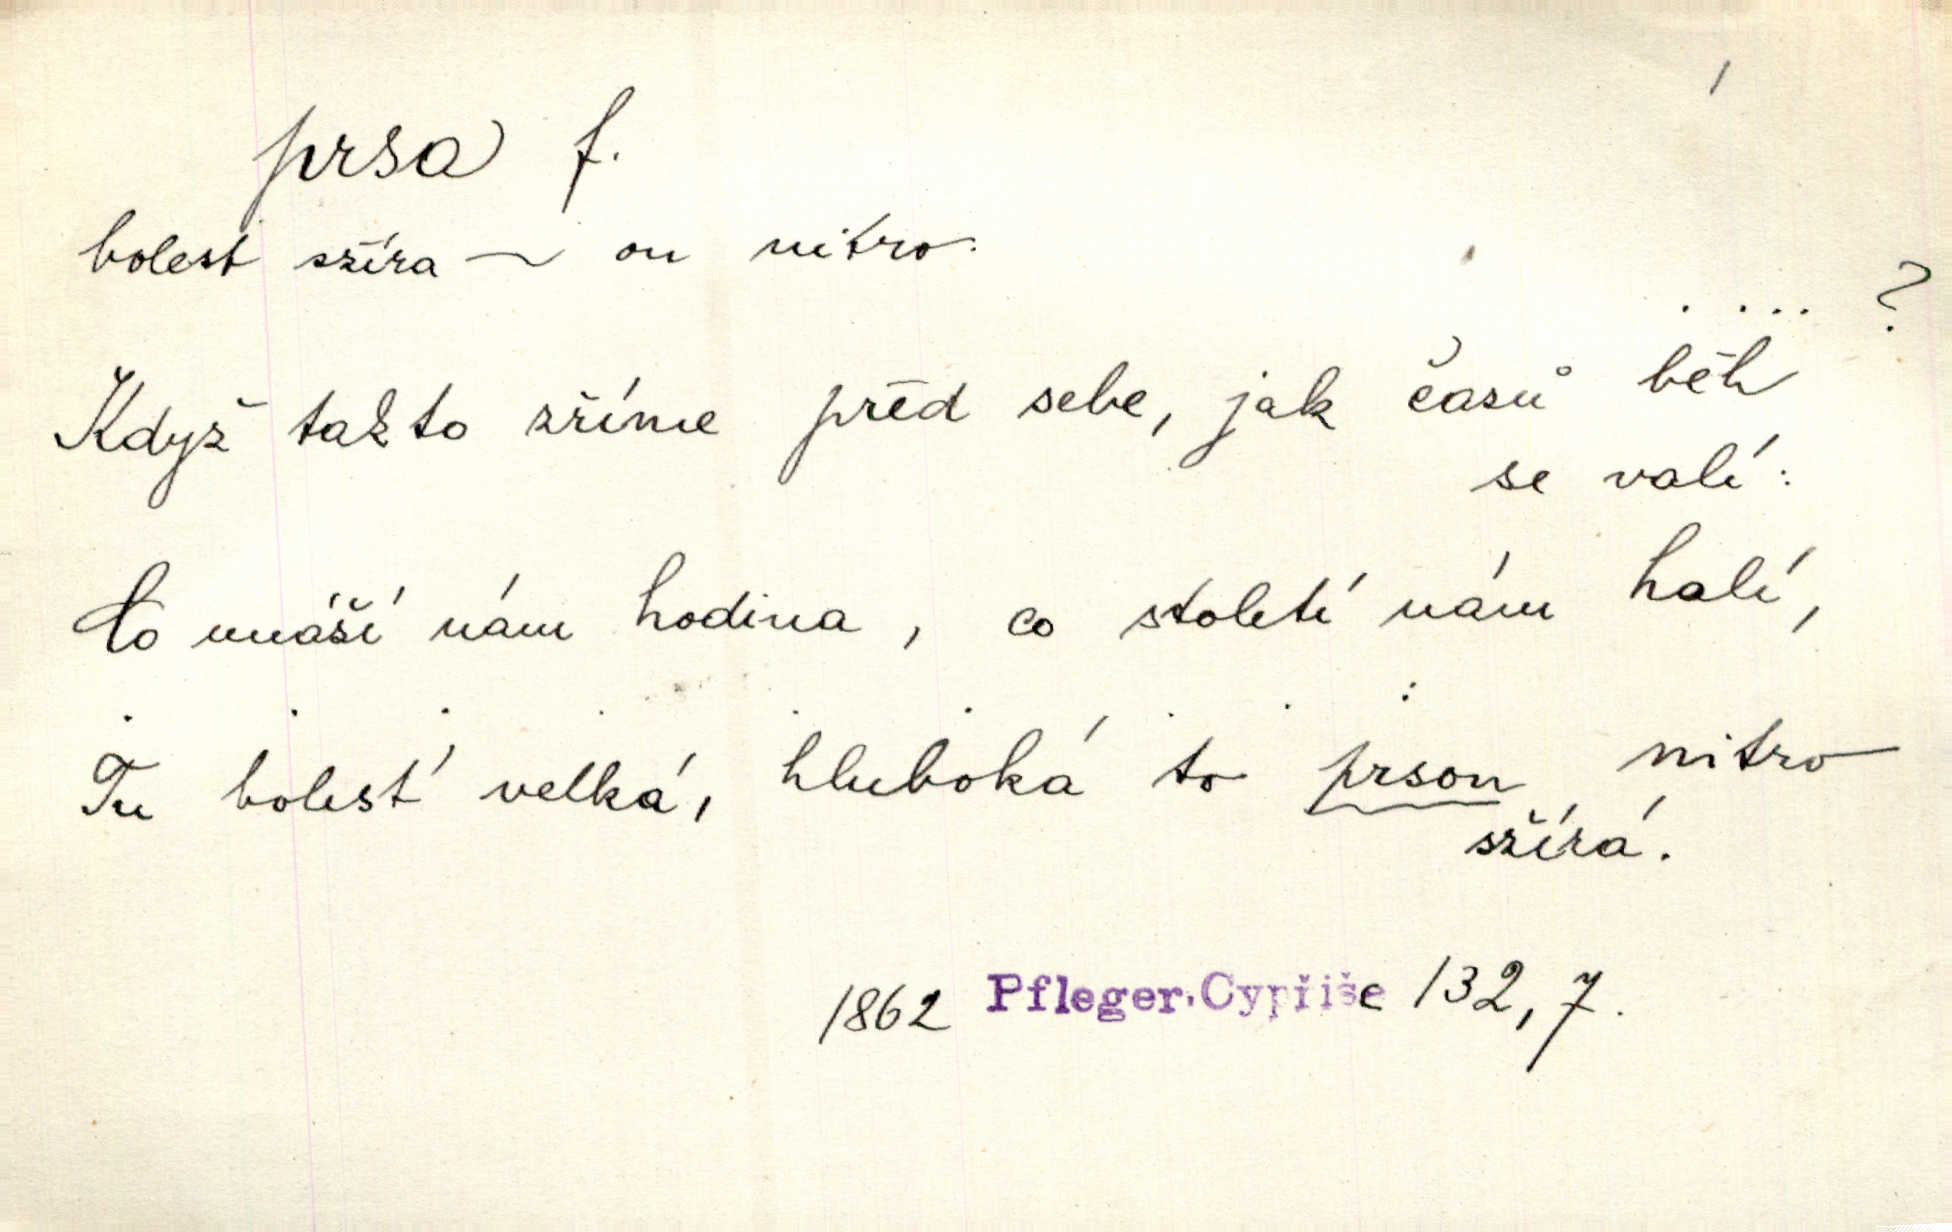 prsa f.
bolest szírá ~ ou nitro.
.... ?
Když takto zříme přéd sebe, jak časů běh
se valí:
Co unáší nám hodina, co století nám halí,
. . . . . . . . :
Tu bolesť velká, hluboká to prsou nitro
szírá.
1862 Pfleger, Cypřiše 132, 7.